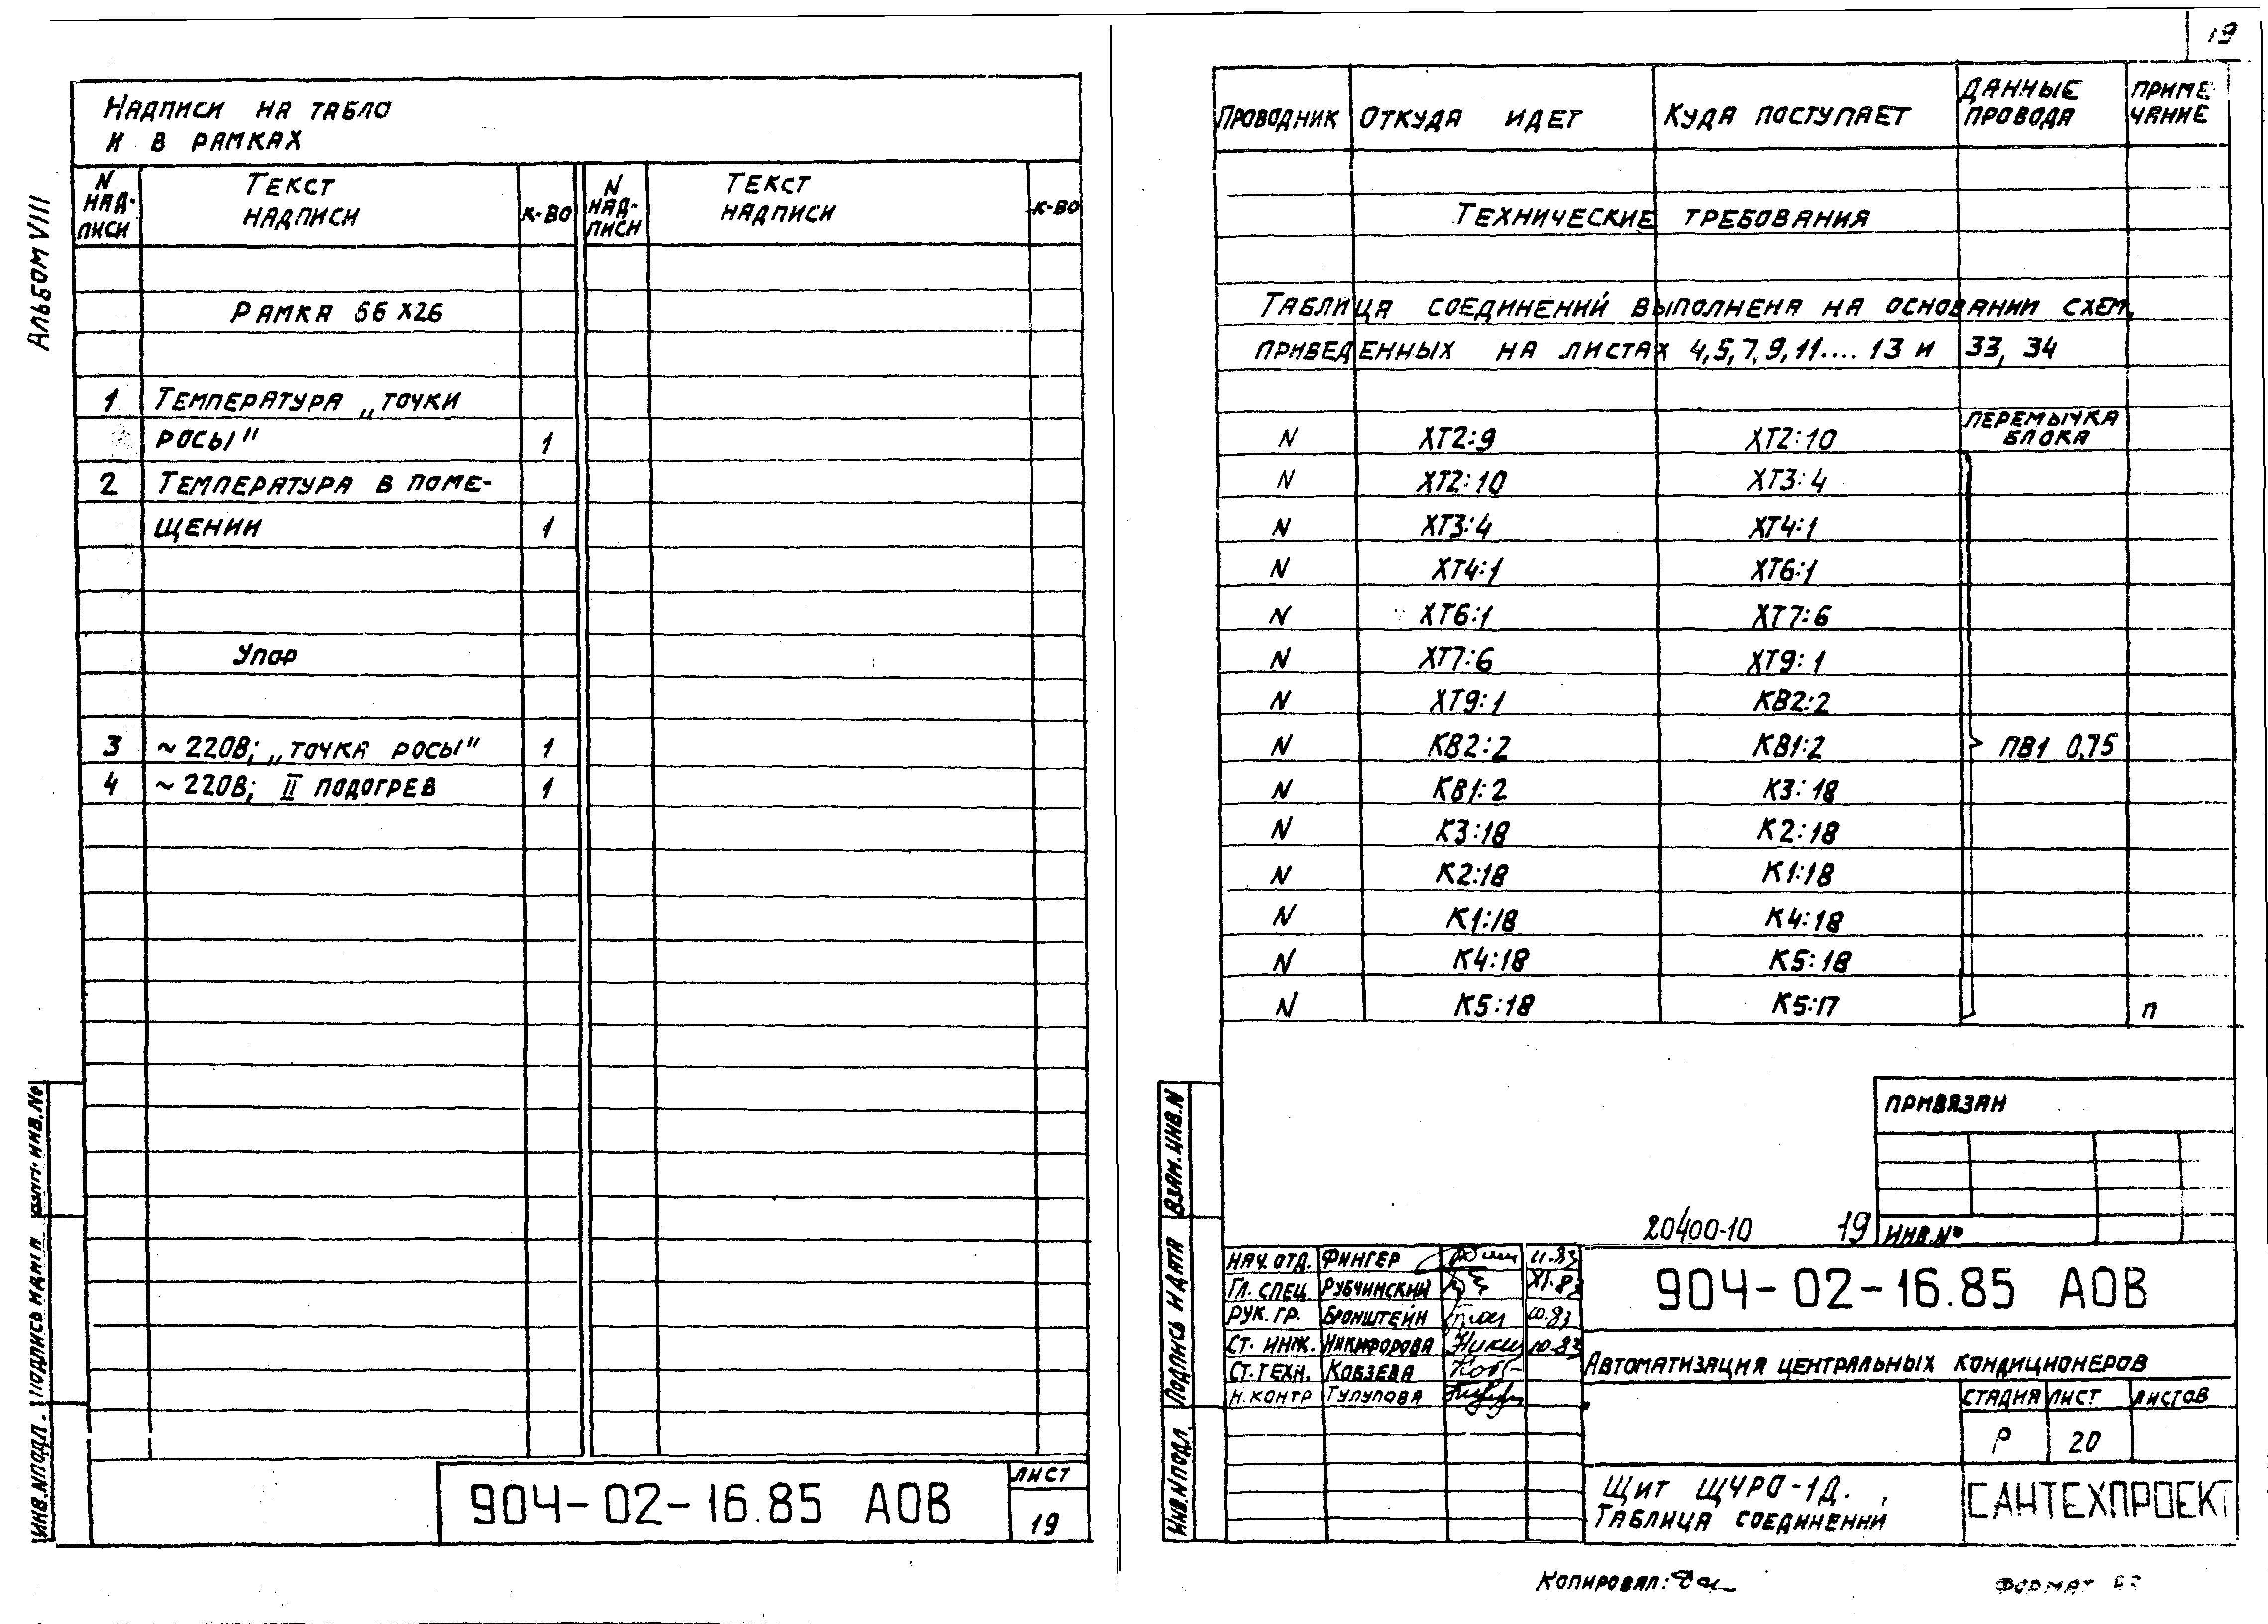 19
Альбом VIII
Надписи на табло
и в рамках
N надписи Текст надписи к-во N надписи Текст надписи к-во
Рамка 66х26
1 Температура „точки
росы" 1
2 Температура в поме-
щении 1
Упор
3 ~220В; „точка росы" 1
4 ~220В; II подогрев 1
904-02-16.85 АОВ
лист
19
Инв.Nподл. Подпись и дата Взам. инв.№
Проводник Откуда идет Куда поступает Данные провода Приме чание
Технические требования
Таблица соединений выполнена на основании схем,
приведенных на листах 4,5,7,9,11.... 13 и 33, 34
N ХТ2:9 ХТ2:10 перемычка блока
N ХТ2:10 ХТ3:4
N ХТ3:4 ХТ4:1
N ХТ4:1 ХТ6:1
N ХТ6:1 ХТ7:6
N ХТ7:6 ХТ9:1
N ХТ9:1 КВ2:2
N КВ2:2 КВ1:2 ПВ1 0,75
N КВ1:2 К3:18
N К3:18 К2:18
N К2:18 К1:18
N К1:18 К4:18
N К4:18 К5:18
N К5:18 К5:17 п
Привязан
Инв.№
20400-10 19
Инв.Nподл. Подпись и дата Взам.инв.N
Нач.отд. Фингер 11.83
Гл. спец. Рубчинский XI.83
Рук. гр. Бронштейн 10.83
Ст. инж. Никифорова 10.83
Ст.техн. Кобзева
Н.контр Тулупова
904-02-16.85 АОВ
Автоматизация центральных кондиционеров
стадия лист листов
Р 20
Щит ЩЧРО-1Д.
Таблица соединений
САНТЕХПРОЕКТ
Копировал:
Формат